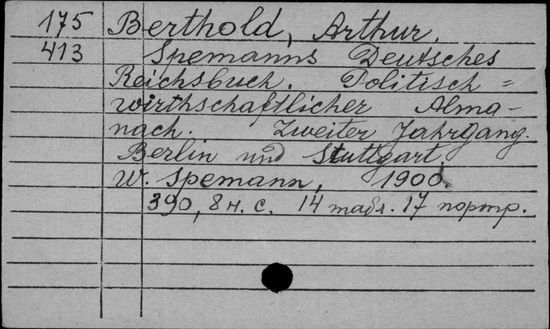 175 Berthold, Arthur.
413 Spemanns Deutsches
Reichsbuch. Politisch=
wirthschaftlicher Alma-
nach. Zweiter Jahrgang.
Berlin und Stuttgart,
W. Spemann, 1900.
390, 8 н. с. 14 табл. 17 портр.